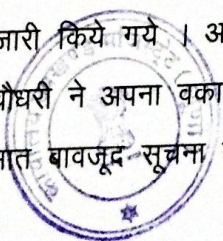 जारी किये गये । अ
चौधरी ने अपना वका
मात बावजूद सूचना